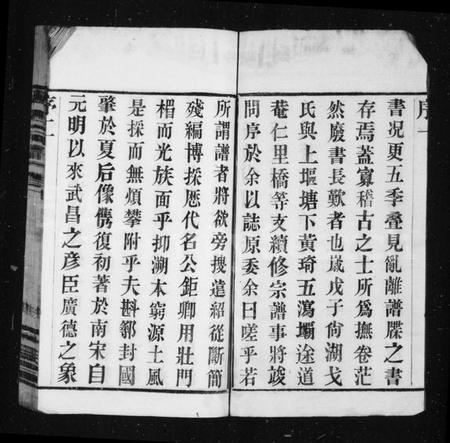 序一
書况更五季疊見亂離譜牒之書
存焉葢寡稽古之士所爲撫卷茫
然廢書長歎者也歲戊子尙湖戈
氏與上堰塘下黃琦五瀉壩途道
菴仁里橋等支續修宗譜事將竣
問序於余以誌原委余曰嗟乎若
所謂譜者將欲旁搜遠紹從斷簡
殘編博採歷代名公鉅卿用壯門
楣而光族面乎抑溯本窮源土風
是採而無煩攀附乎夫斟鄩封國
肇於夏后像儁復初著於南宋自
元明以來武昌之彥臣廣德之象
序二